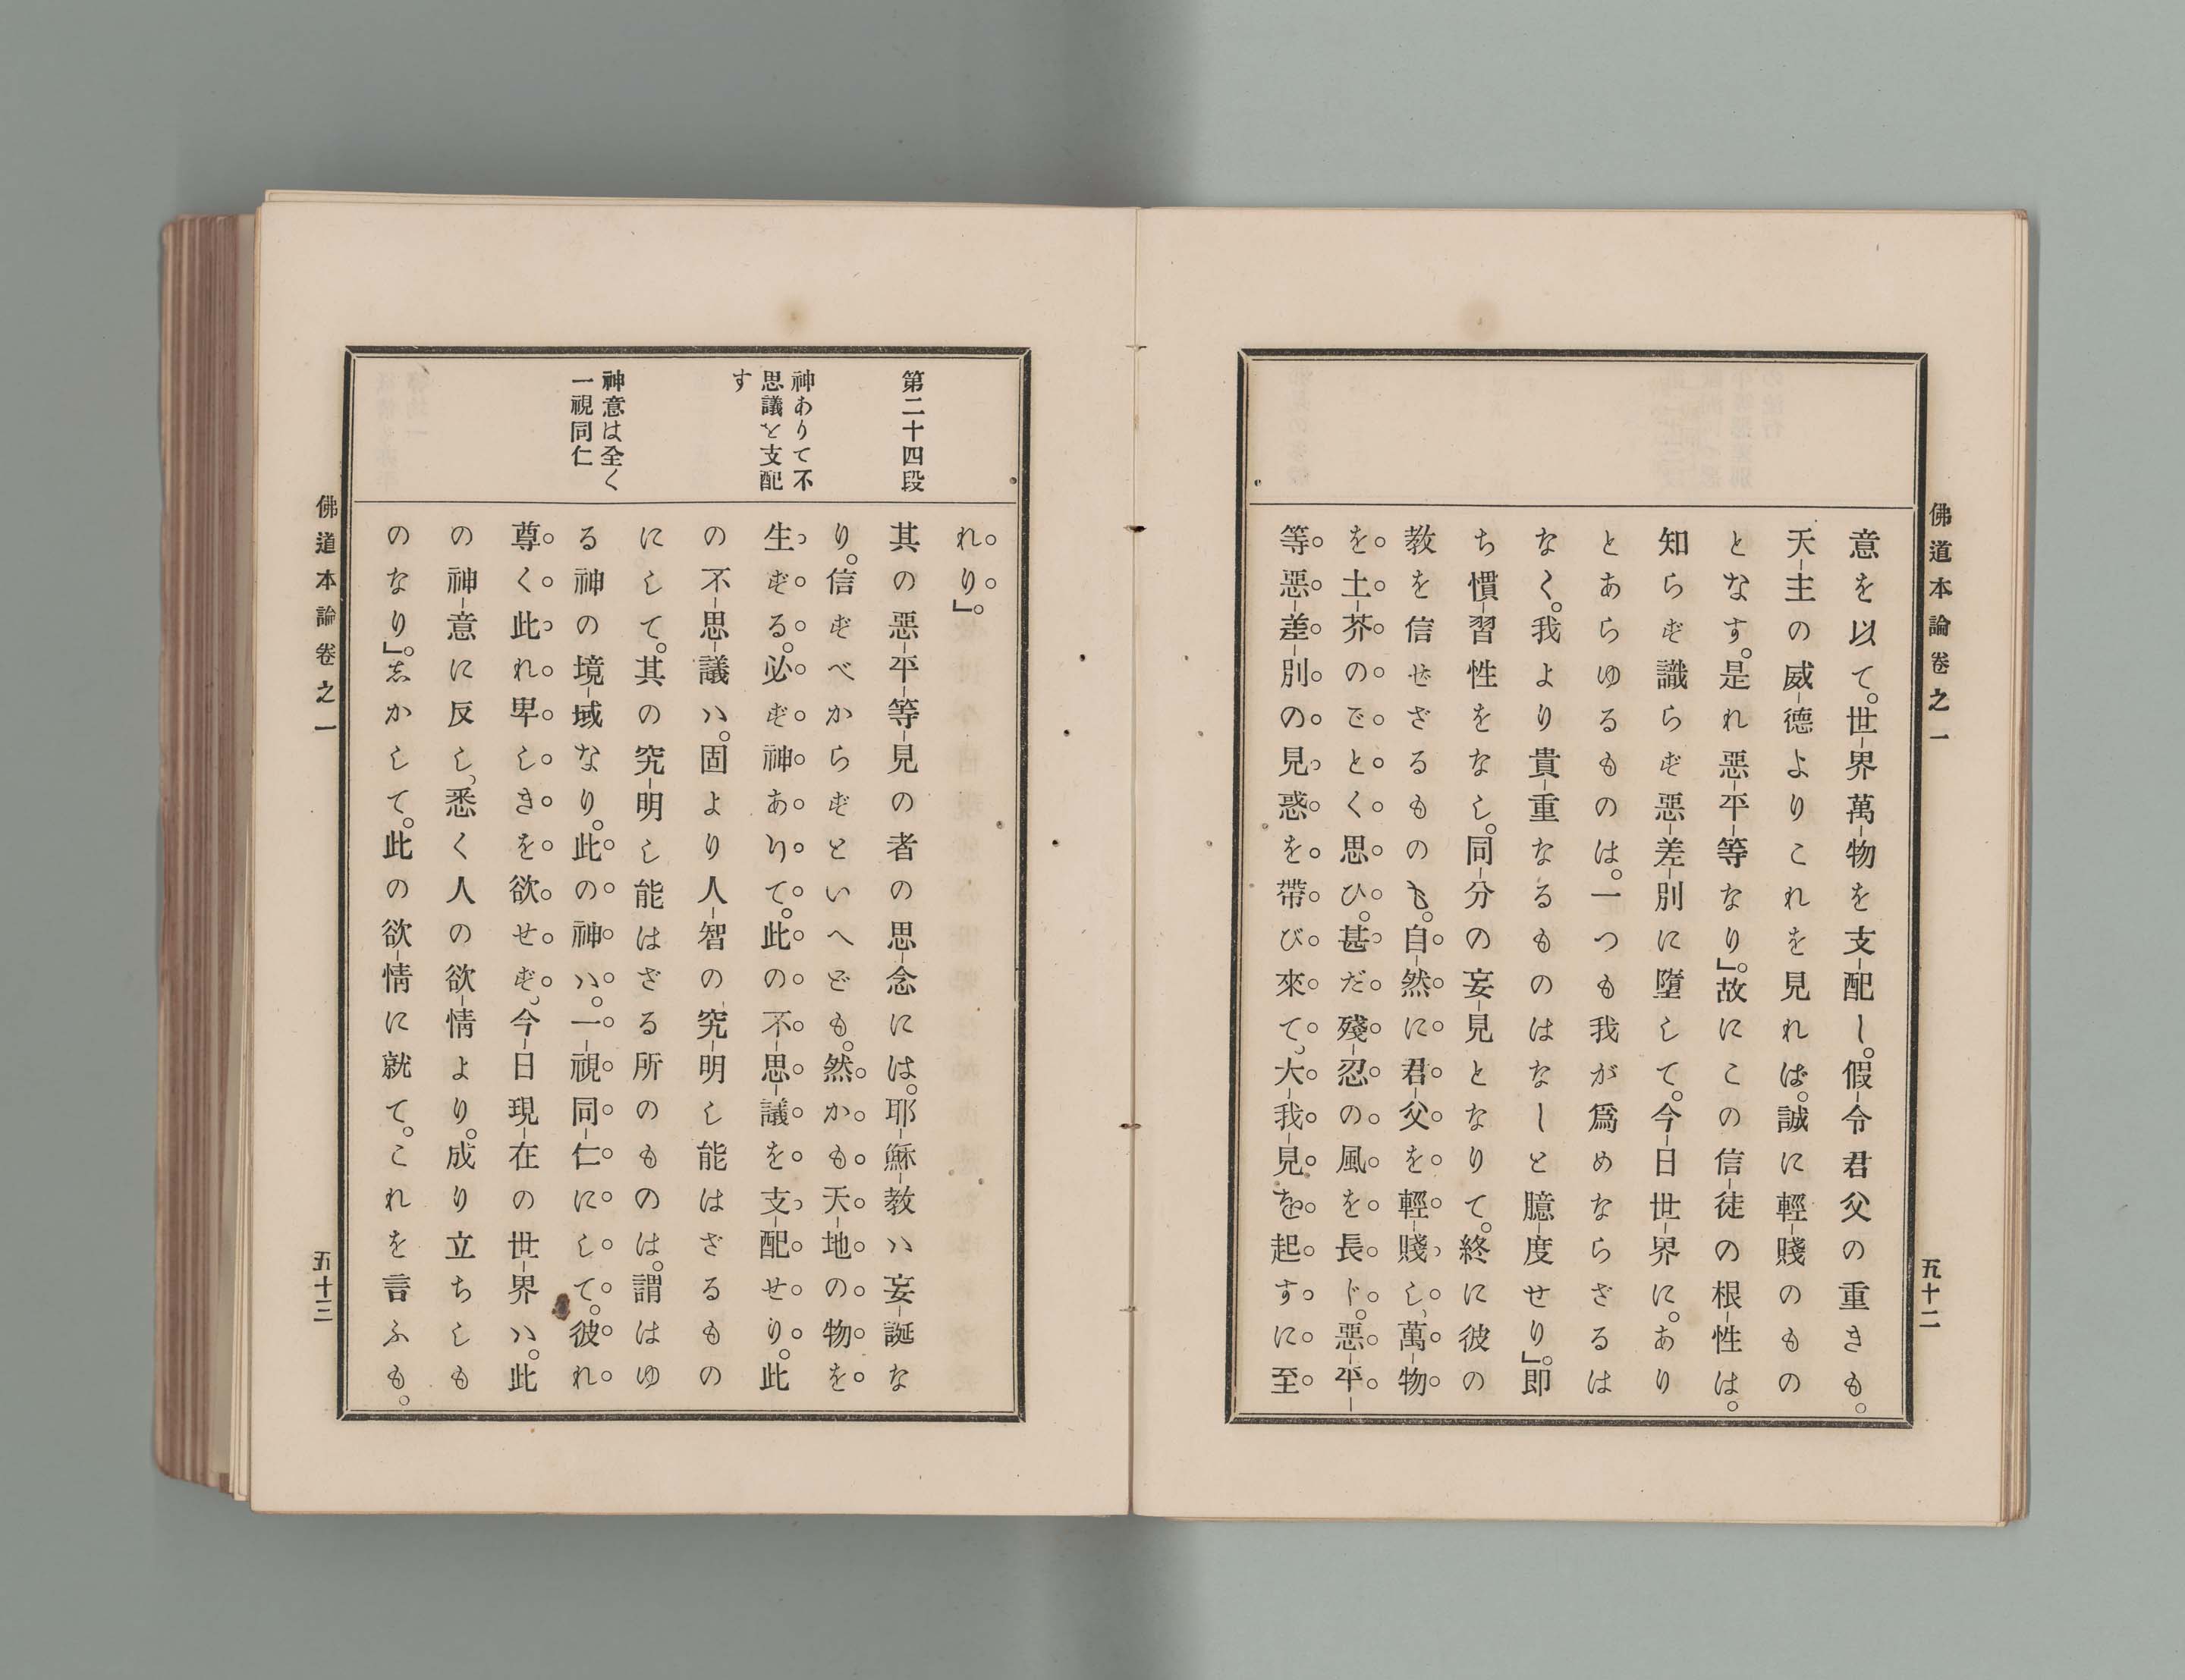 佛道本論卷之一
五十二
意を以て。世界萬物を支配し。假令君父の重きも。
天主の威德よりこれを見れば。誠に輕賤のもの
となす。是れ惡平等なり」。故にこの信徒の根性は。
知らず識らず惡差別に墮して。今日世界に。あり
とあらゆるものは。一つも我が爲めならざるは
なく。我より貴重なるものはなしと臆度せり」。即
ち慣習性をなし。同分の妄見となりて。終に彼の
教を信せざるものも。自然に君父を輕賤し、萬物
を土芥のごとく思ひ。甚だ殘忍の風を長ド。惡平
等惡差別の見惑を帶び來て、大我見を起すに至
れり」。
第二十四段
其の惡平等見の者の思念には。耶穌教ハ妄誕な
り。信ずべからずといへども。然かも天地の物を
神ありて不
思議を支配
す
生ずる。必ず神ありて。此の不思議を支配せり。此
の不思議ハ。固より人智の究明し能はざるもの
にして。其の究明し能はざる所のものは。謂はゆ
神意は全く
一視同仁
る神の境域なり。此の神ハ。一視同仁にして。彼れ
尊く此れ卑しきを欲せず、今日現在の世界ハ。此
の神意に反し、悉く人の欲情より。成り立ちしも
のなり」。志かして。此の欲情に就て。これを言ふも。
佛道本論卷之一
五十三